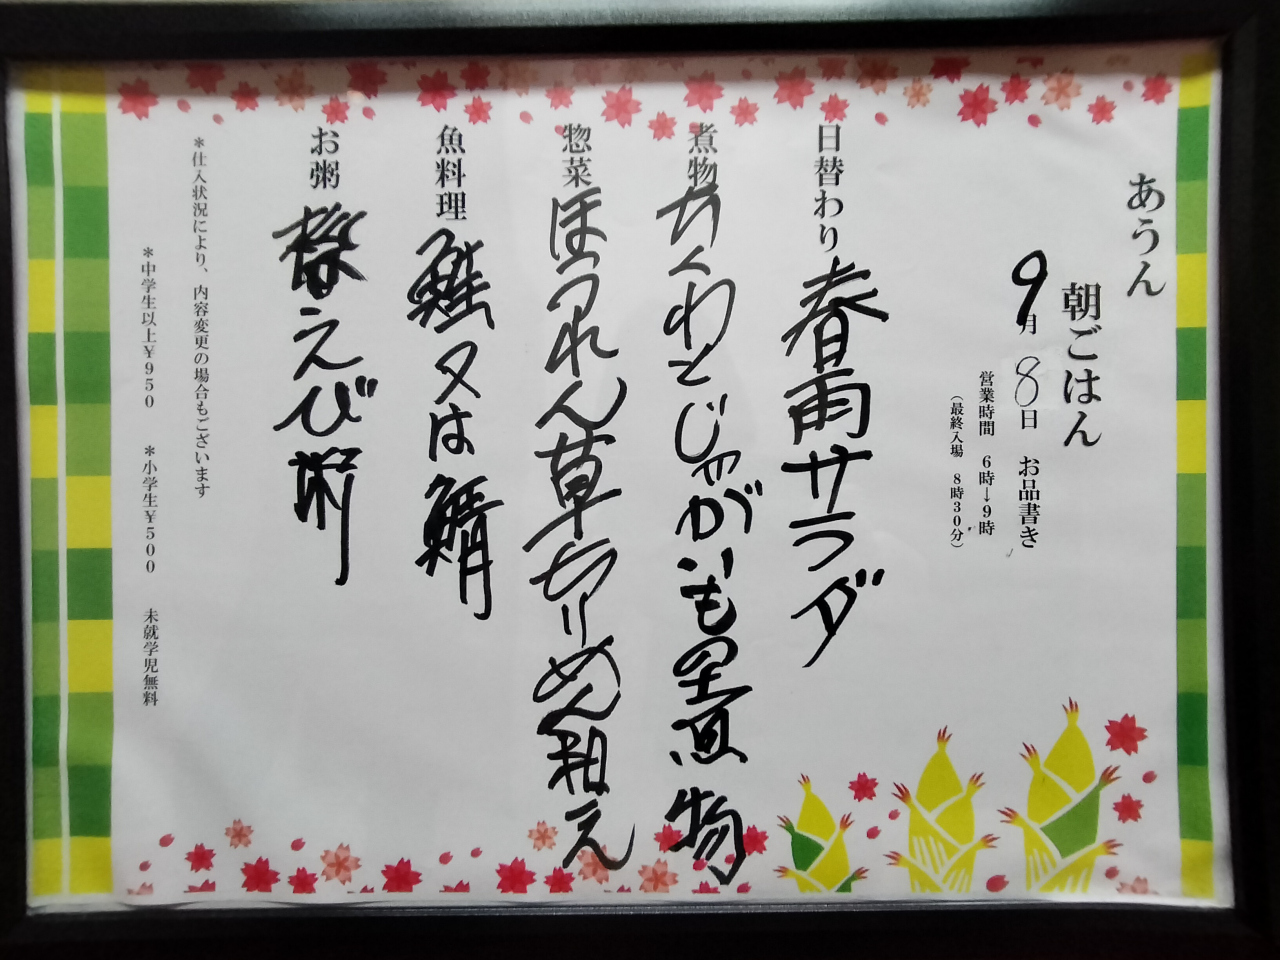 あうん
朝ごはん
9月8日 お品書き
営業時間 6時→9時
(最終入場 8時30分)
日替わり 春雨サラダ
煮物 ちくわとじゃがいも里煮物
惣菜 ほうれん草ちりめん和え
魚料理 鮭又は鯖
お粥 桜えび粥
*仕入状況により、内容変更の場合もございます
*中学生以上¥950 *小学生¥500 未就学児無料